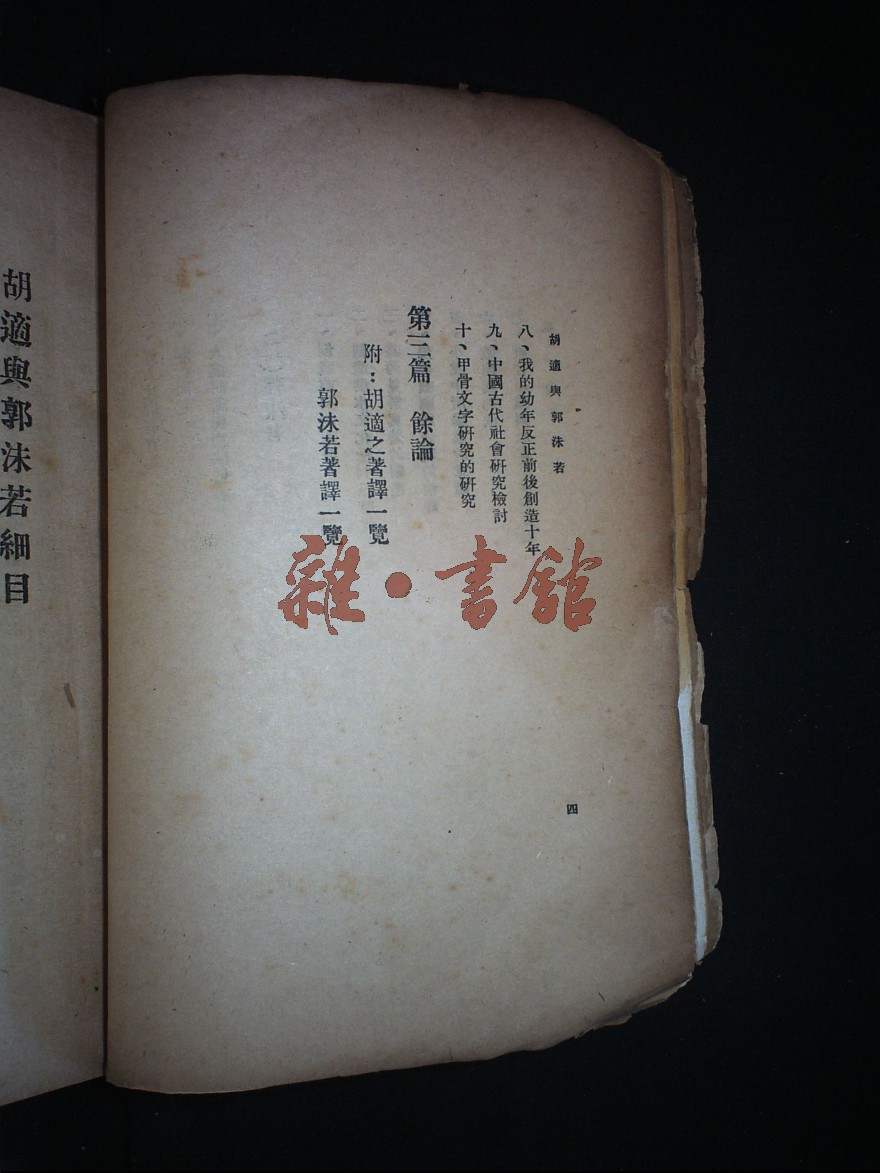 胡適與郭沫若
八、我的幼年反正前後創造十年
九、中國古代社會硏究檢討
十、甲骨文字硏究的硏究
第三篇　餘論
附：胡適之著譯一覽
郭沫若著譯一覽
四
胡適與郭沫若細目
雜·書館